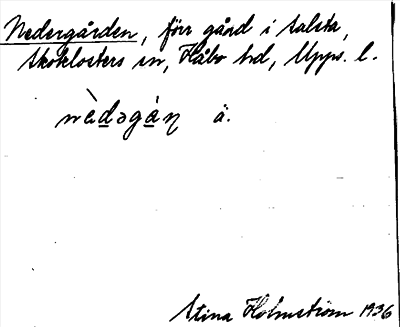 Nedergården, förr gård i Salsta,
Skoklosters sn, Håbo hd, Upps. l.
nèdəgàɳ ä.
Stina Holmström 1936